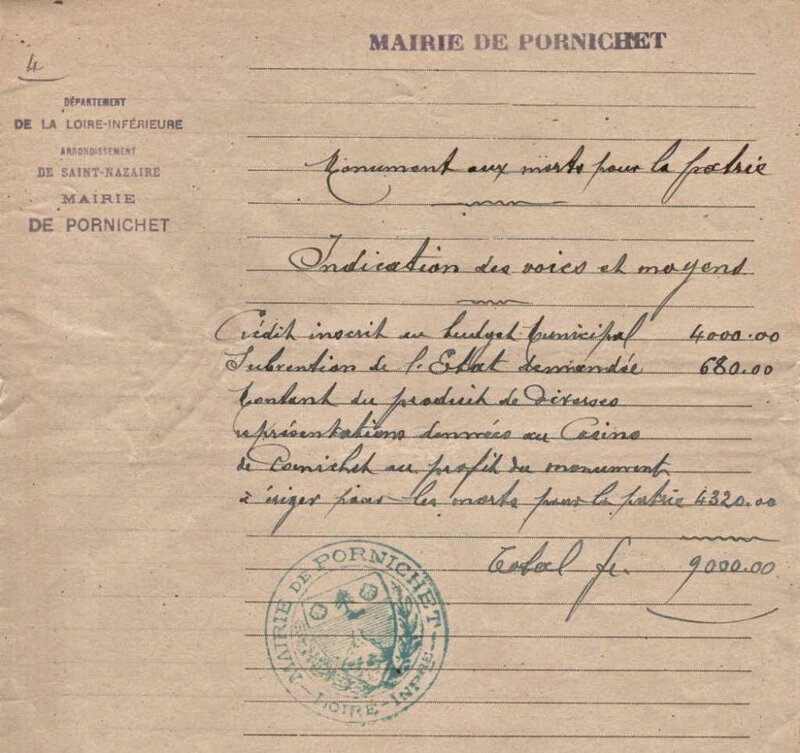 MAIRIE DE PORNICHET
4
DÉPARTEMENT
DE LA LOIRE-INFÉRIEURE
ARRONDISSEMENT
DE SAINT-NAZAIRE
MAIRIE
DE PORNICHET
Monument aux morts pour la patrie
Indication des voies et moyens
Crédit inscrit au budget Municipal 4000.00
Subvention de l'Etat demandée 680.00
Montant du produit de diverses
représentations données au Casino
de Pornichet au profit du monument
à ériger pour les morts pour la patrie 4320.00
Total fr. 9000.00
MAIRIE DE PORNICHET
LOIRE-INFRE